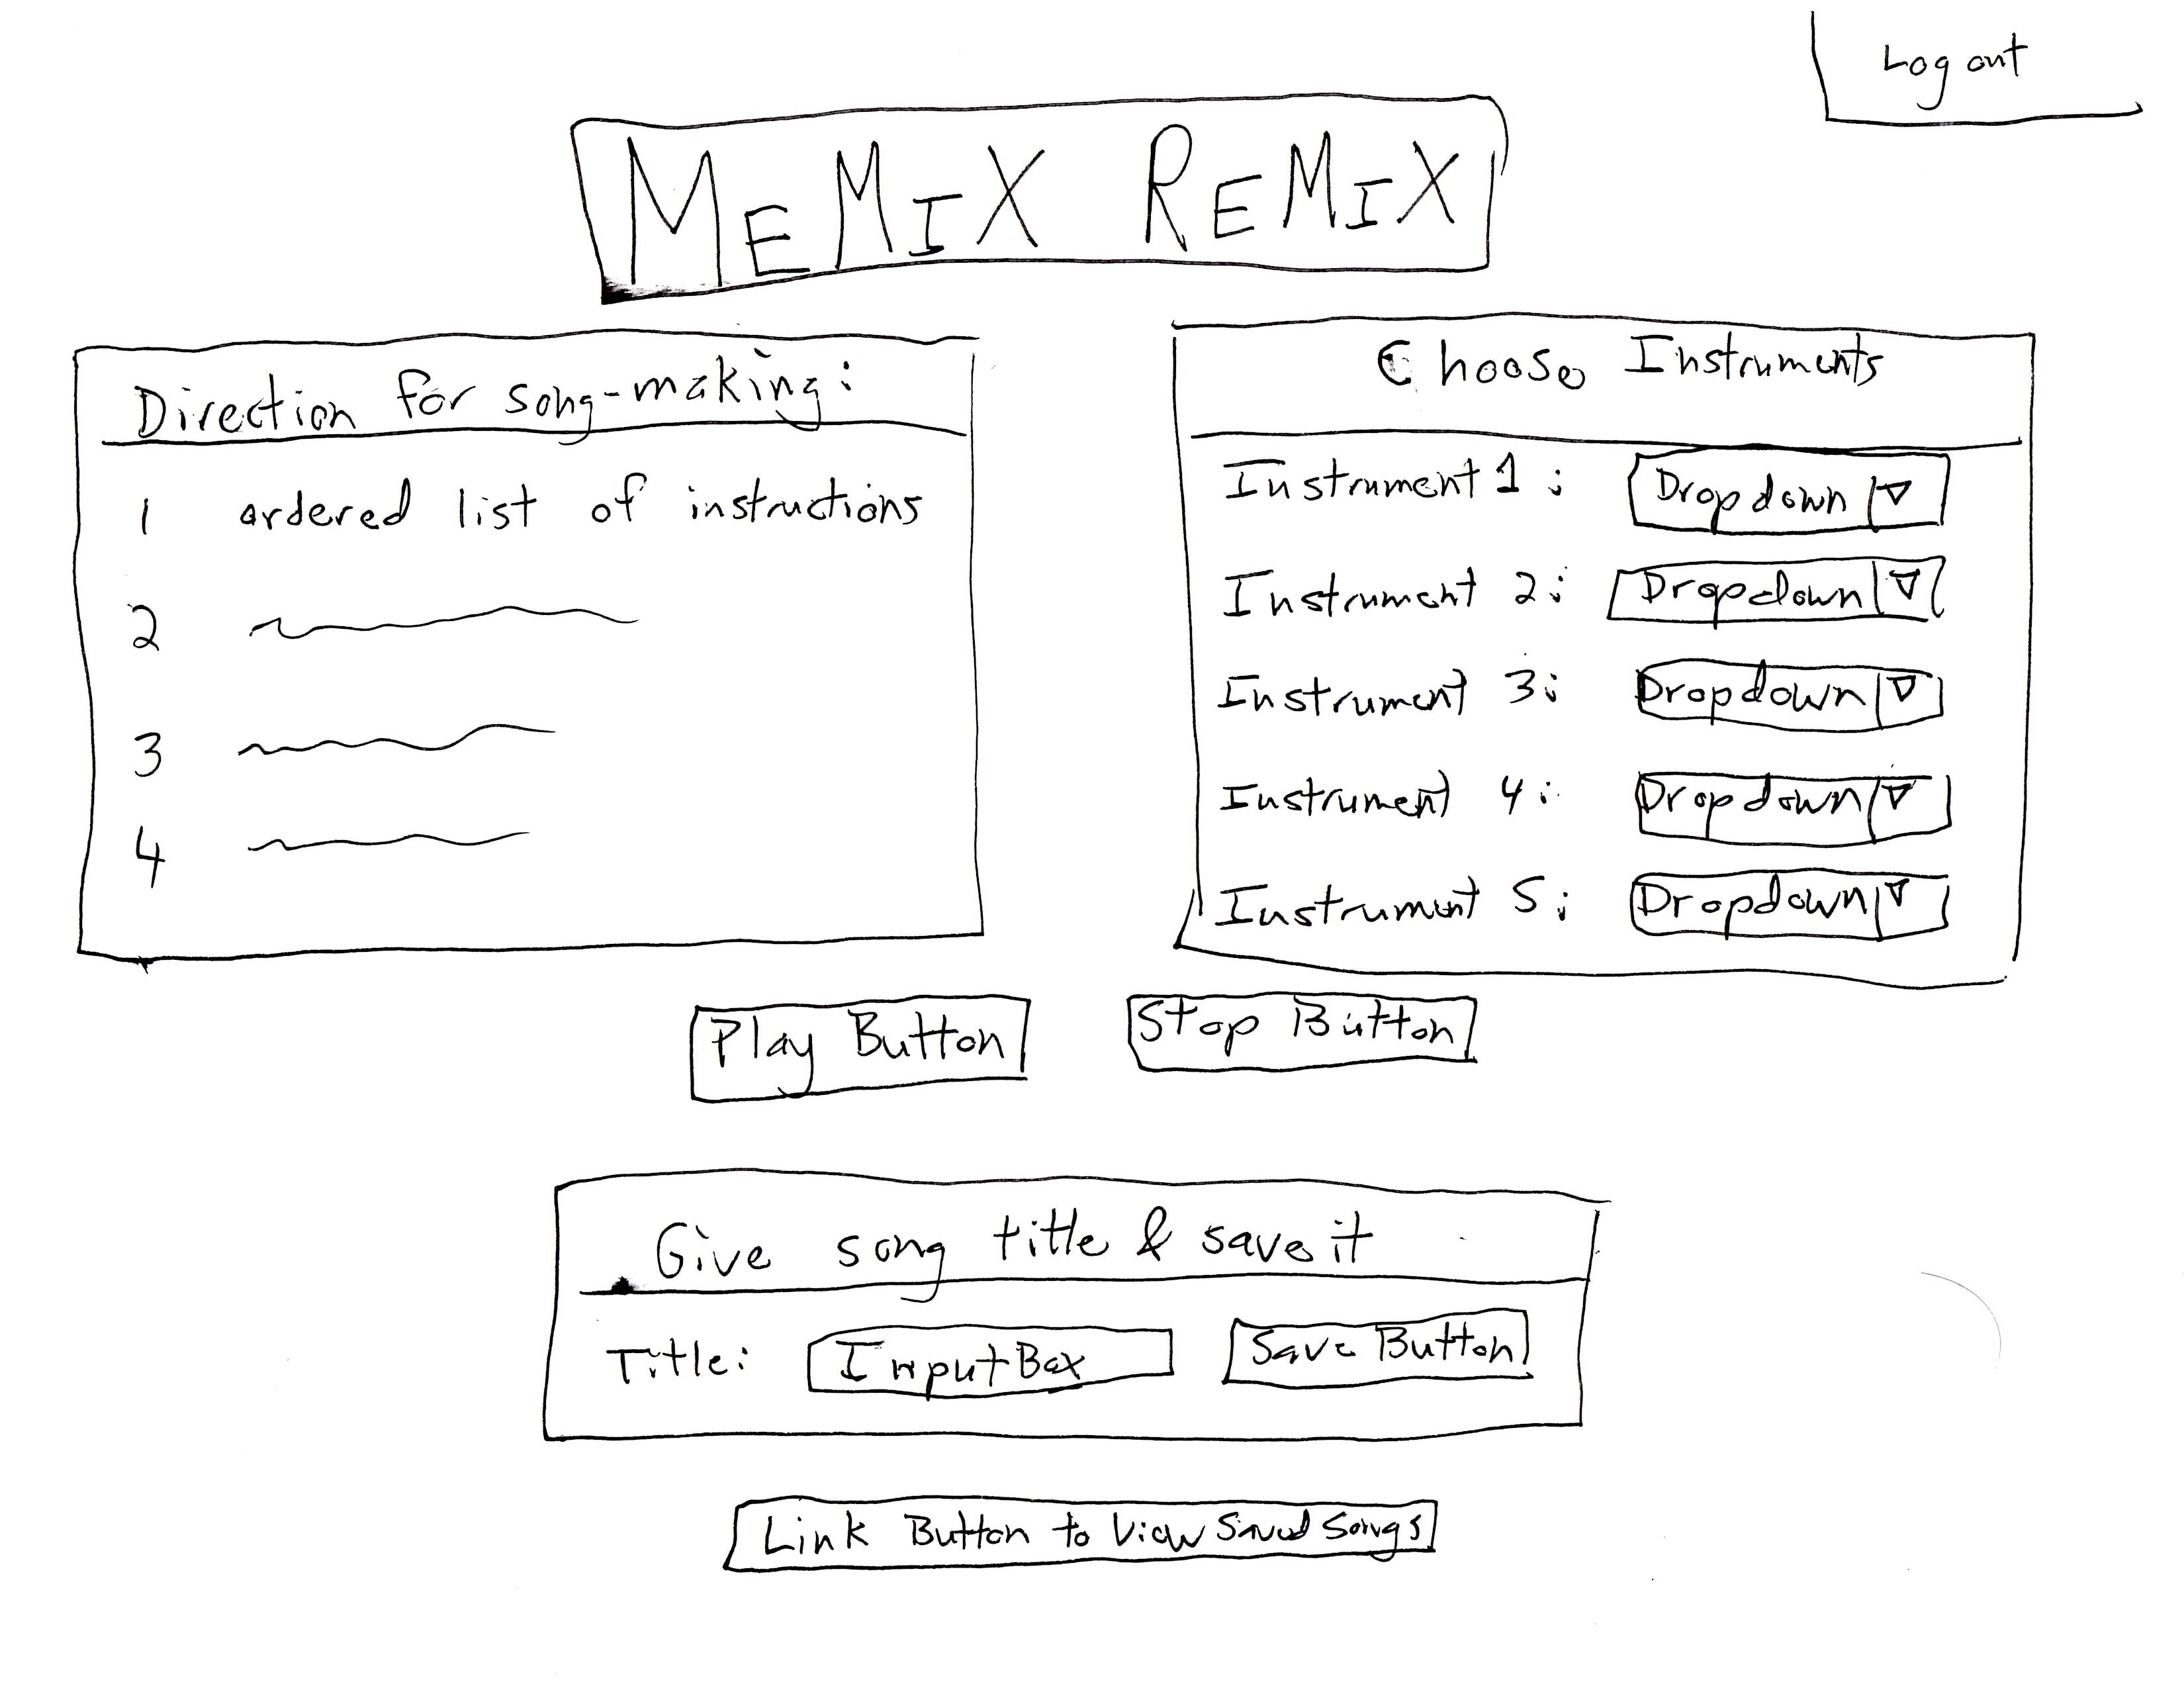 Log out
MEMIX REMIX
Direction for song-making:
1 ordered list of instructions
2
3
4
Choose Instruments
Instrument 1: Dropdown
Instrument 2: Dropdown
Instrument 3: Dropdown
Instrument 4: Dropdown
Instrument 5: Dropdown
Play Button
Stop Button
Give song title & save it
Title: Input Box Save Button
Link Button to View Saved Songs